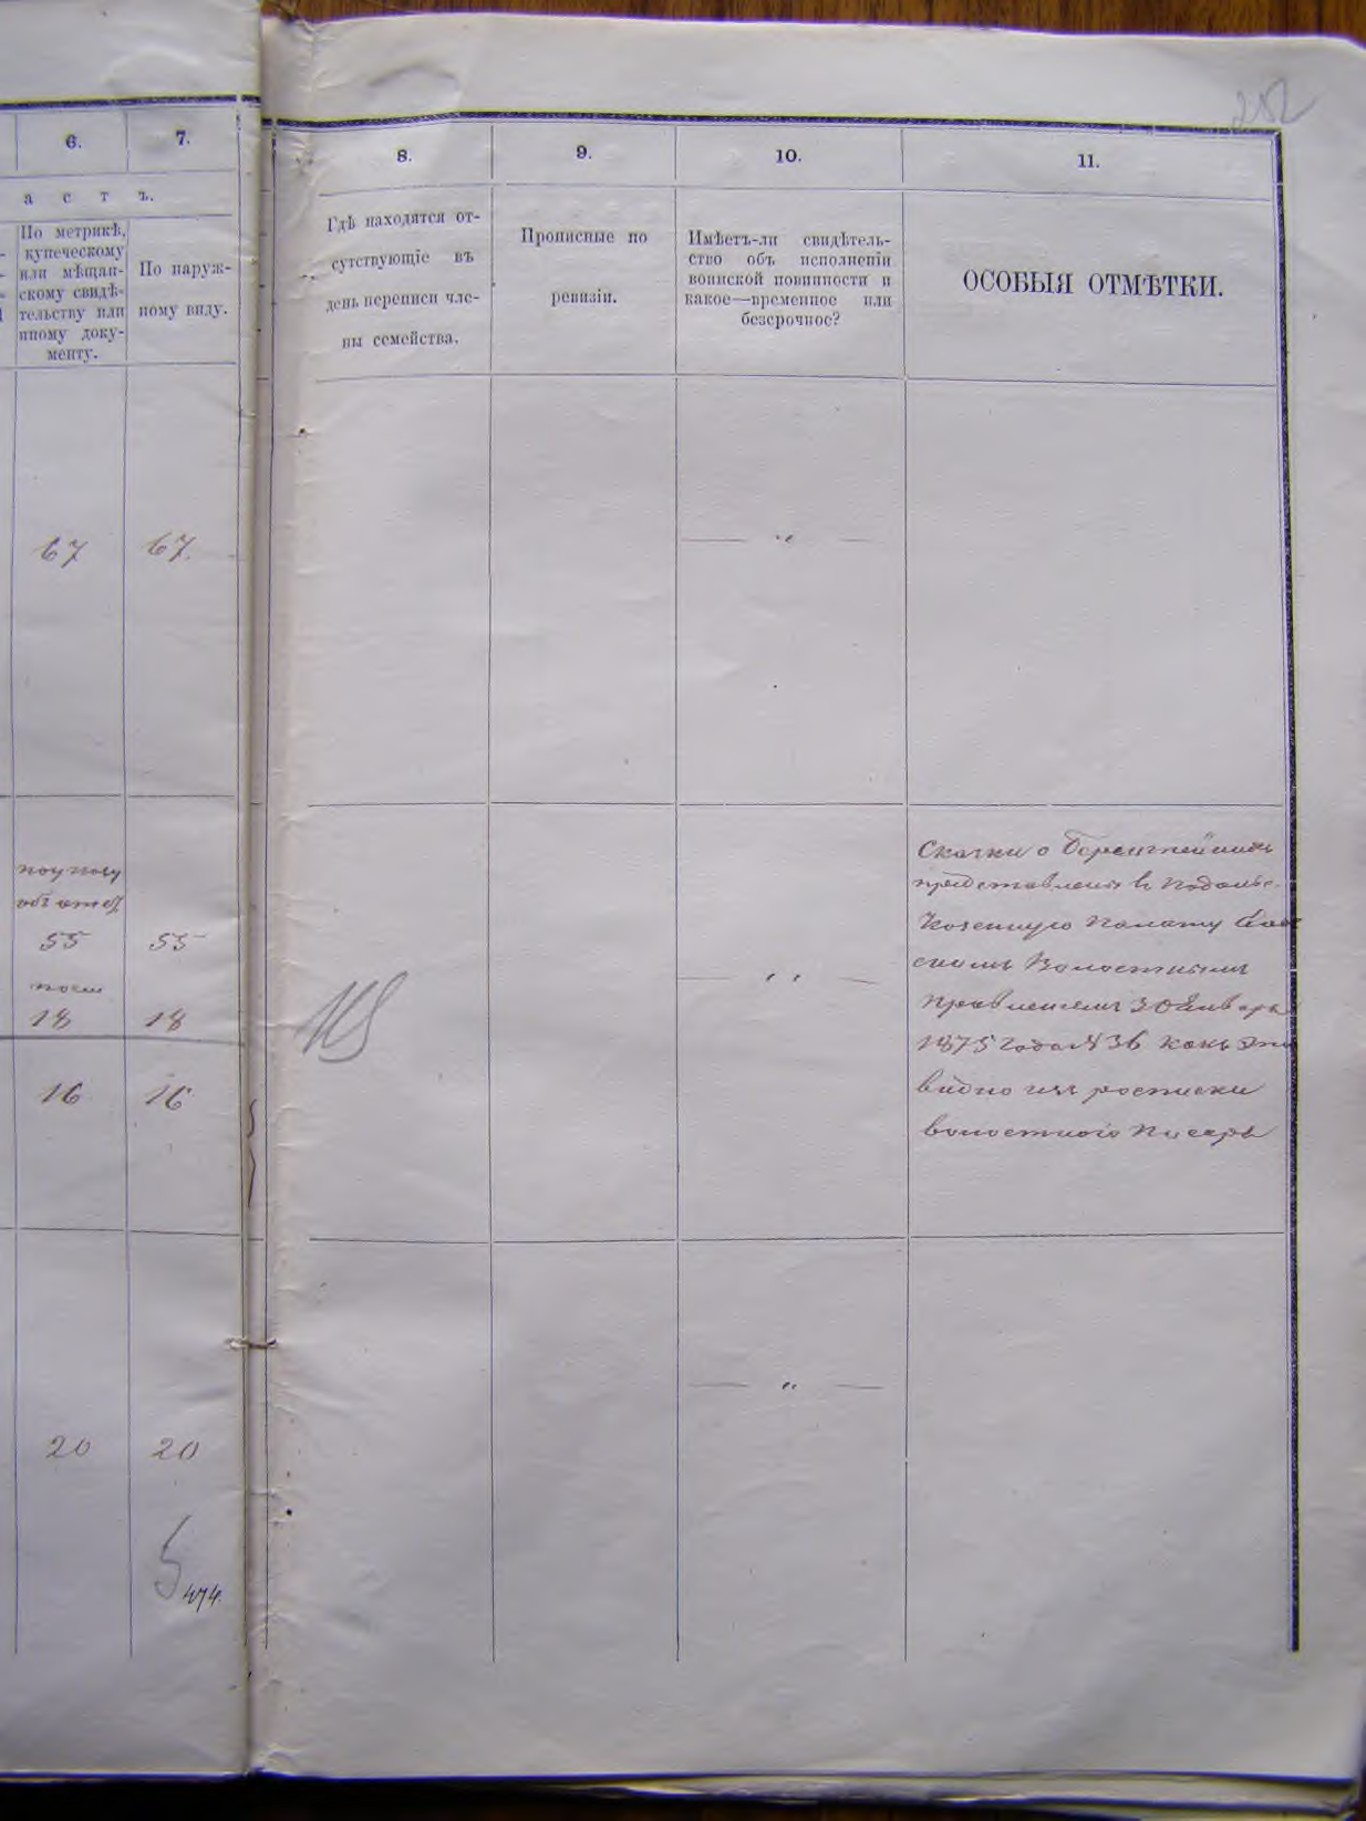 252
6.
7.
8.
9.
10.
11.
а с т ъ.
По метрикѣ,
купеческому
или мѣщан-
скому свидѣ-
тельству или
иному доку-
менту.
По наруж-
ному виду.
Гдѣ находятся от-
сутствующіе въ
день переписи чле-
ны семейства.
Прописные по
ревизіи.
Имѣетъ-ли свидѣтель-
ство объ исполненіи
воинской повинности и
какое—временное или
безсрочное?
ОСОБЫЯ ОТМѢТКИ.
67
67.
— „ —
55
55
18
18
16
16
— „ —
Сказки о
представлены въ Подольс.
Казенную Палату
скимъ Волостнымъ
Правленіемъ 30 Января
1875 года № 36 какъ это
видно изъ росписки
волостного Писаря
20
20
— „ —
5
474.